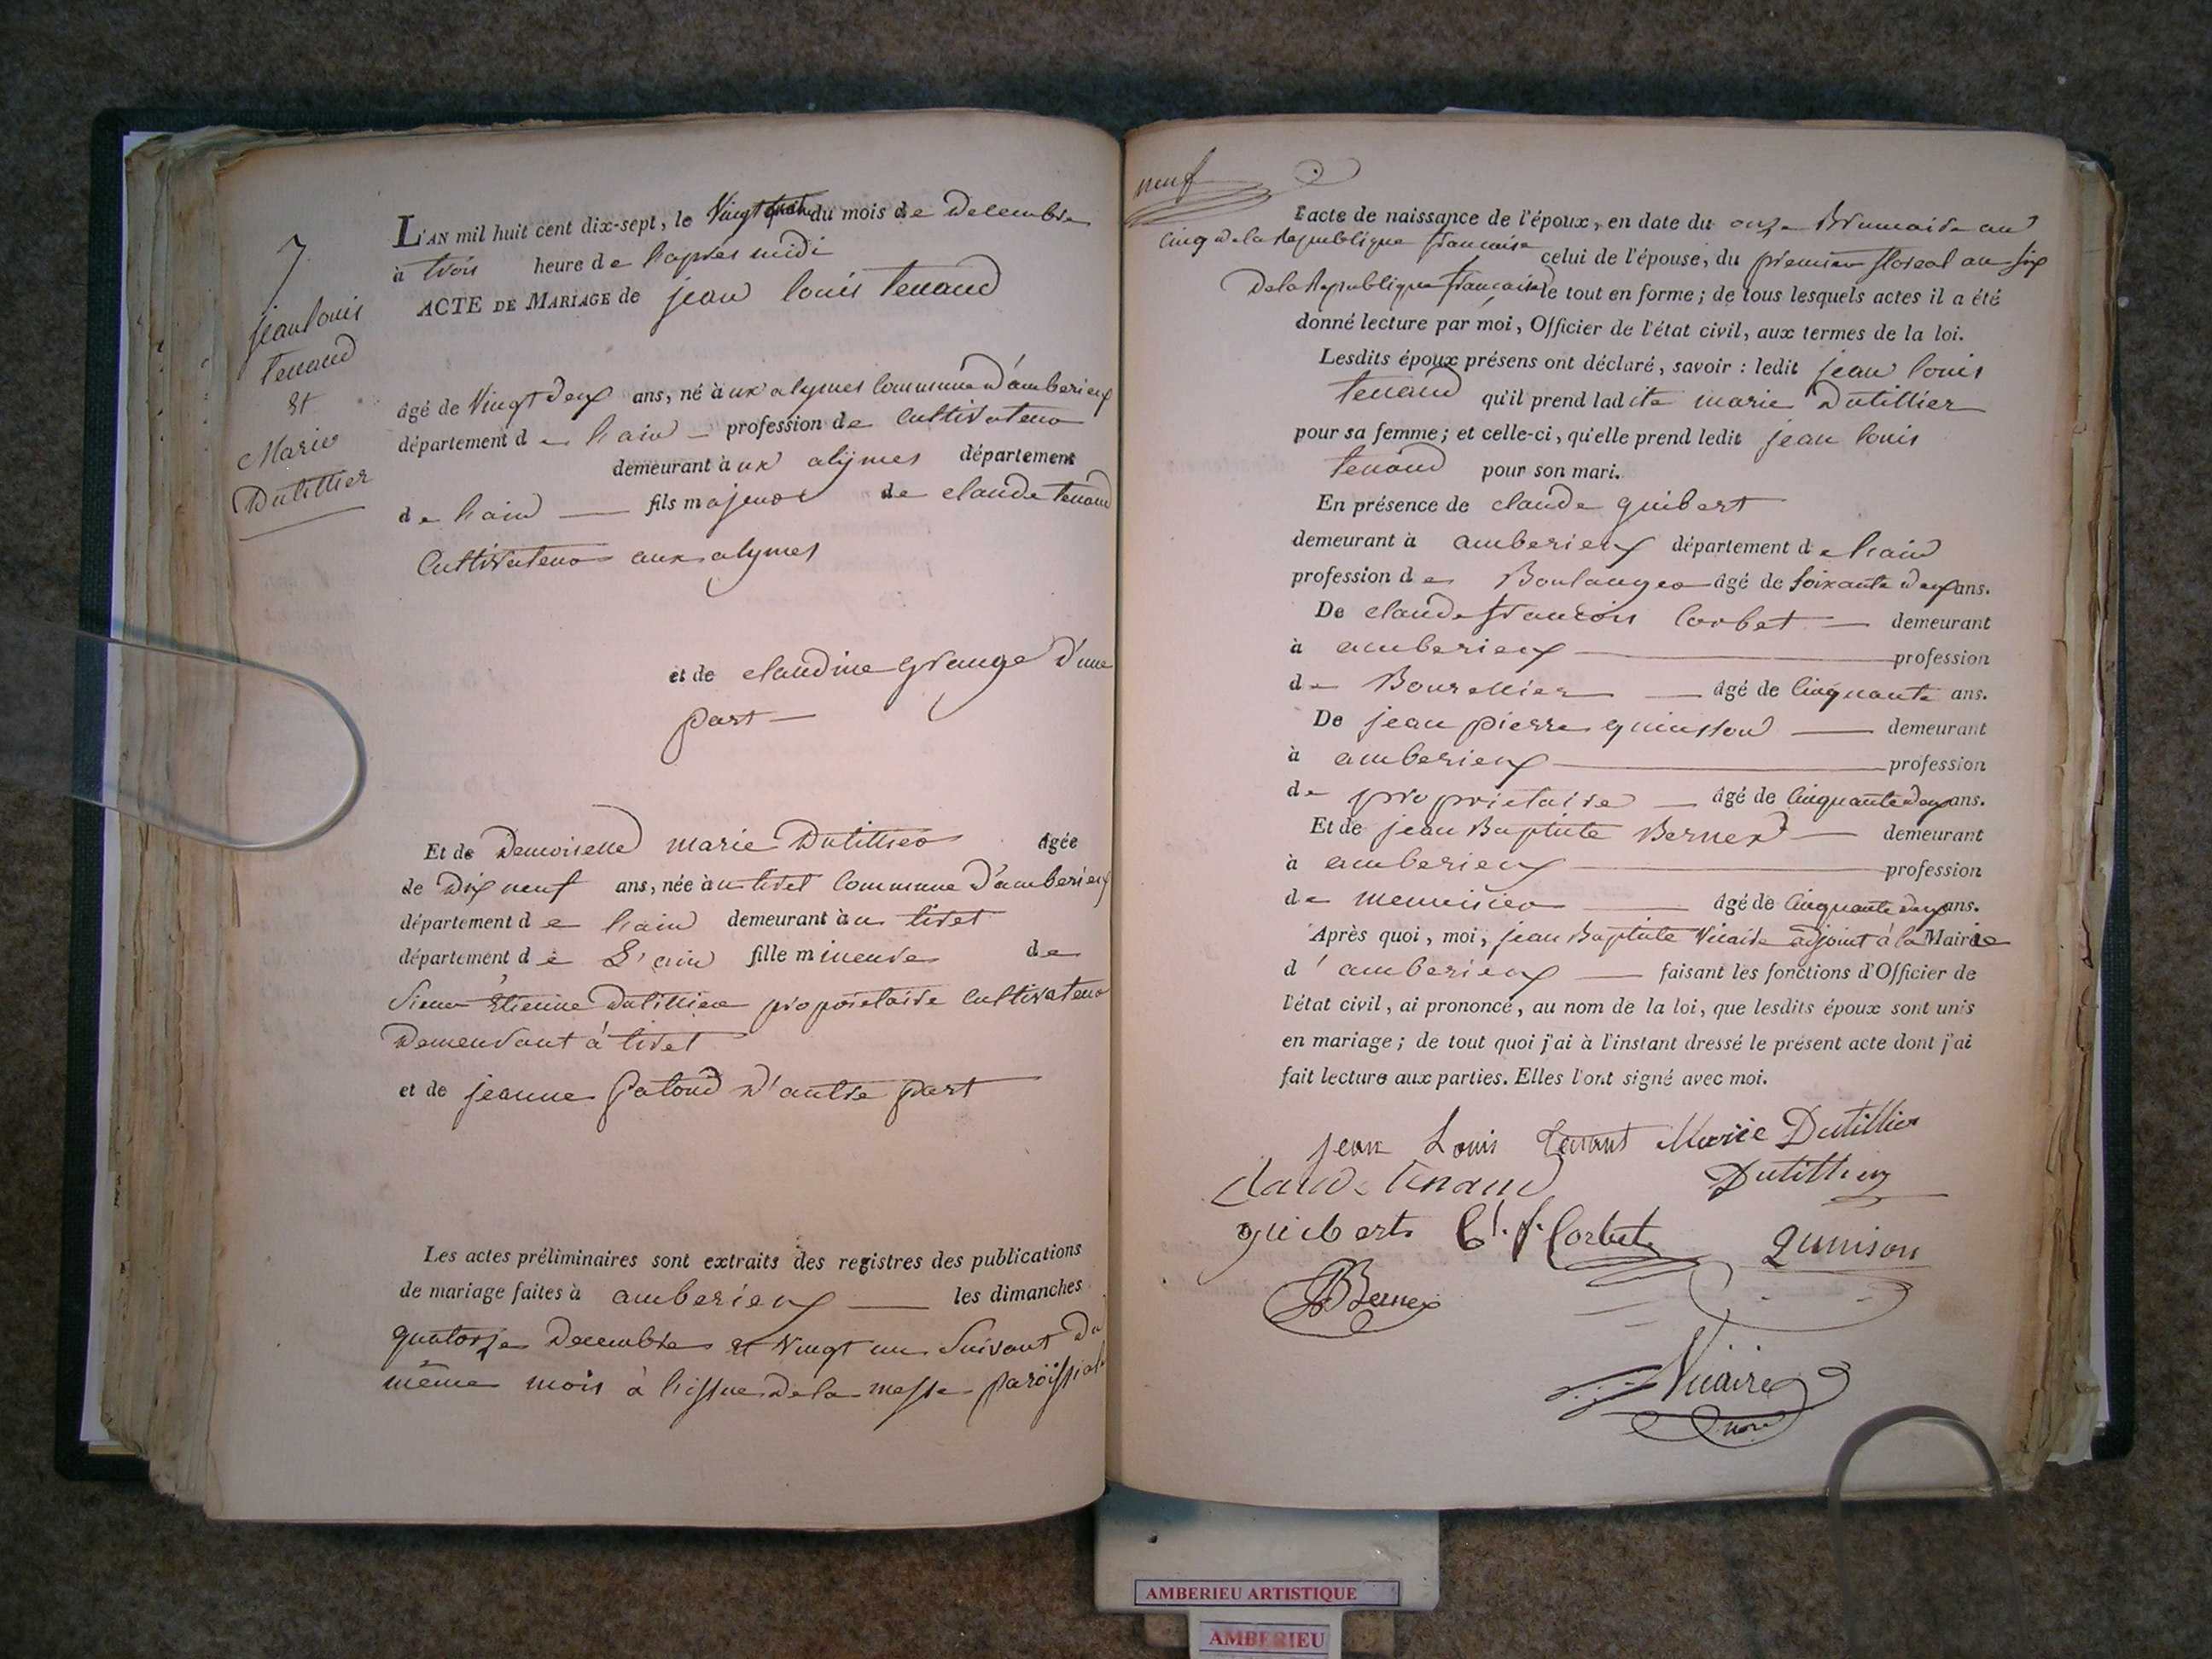 7
jean louis
tenand
et
Marie
Dutillier
L'AN mil huit cent dix-sept, le Vingt du mois de Decembre
à trois heure de l'apres midi
ACTE DE MARIAGE de jean louis tenand
âgé de Vingt deux ans, né à ux alymes Commune d'amberieux
département de l'ain — profession de Cultivateur
demeurant à ux alymes département
de l'ain — fils majeur de claude tenand
Cultivateur aux alymes
et de claudine grange d'une
part —
Et de Demoiselle marie Dutillier âgée
de Dix neuf ans, née à u tiret Commune d'amberieux
département de l'ain demeurant à u tiret
département de L'ain fille mineure de
Sieur Etienne Dutillier proprietaire Cultivateur
Demeurant à tiret
et de jeanne patoud d'autre part
Les actes préliminaires sont extraits des registres des publications
de mariage faites à amberieux — les dimanches
quatorze Decembre et Vingt un Suivant du
même mois à l'issue de la messe paroissiale
neuf
l'acte de naissance de l'époux, en date du onze Brumaire an
cinq de la Republique francaise celui de l'épouse, du premier floreal an six
De la Republique francaise le tout en forme; de tous lesquels actes il a été
donné lecture par moi, Officier de l'état civil, aux termes de la loi.
Lesdits époux présens ont déclaré, savoir : ledit jean louis
tenand qu'il prend ladite marie Dutillier
pour sa femme; et celle-ci, qu'elle prend ledit jean louis
tenand pour son mari.
En présence de claude guibert
demeurant à amberieux département de l'ain
profession de Boulanger âgé de soixante deux ans.
De claude francois Corbet — demeurant
à amberieux — profession
de Bourellier — âgé de Cinquante ans.
De jean pierre quinsson — demeurant
à amberieux — profession
de proprietaire — âgé de Cinquante deux ans.
Et de jean Baptiste Bernex — demeurant
à amberieux — profession
de menuisier — âgé de Cinquante deux ans.
Après quoi, moi, jean Baptiste Vicaire adjoint à la Mairie
d'amberieux — faisant les fonctions d'Officier de
l'état civil, ai prononcé, au nom de la loi, que lesdits époux sont unis
en mariage; de tout quoi j'ai à l'instant dressé le présent acte dont j'ai
fait lecture aux parties. Elles l'ont signé avec moi.
jean Louis Tenant Marie Dutillier
Claude tenand Dutillier
guiberts Cl. f. Corbet Quinson
JB Bernex
Vicaire
AMBERIEU ARTISTIQUE
AMBERIEU